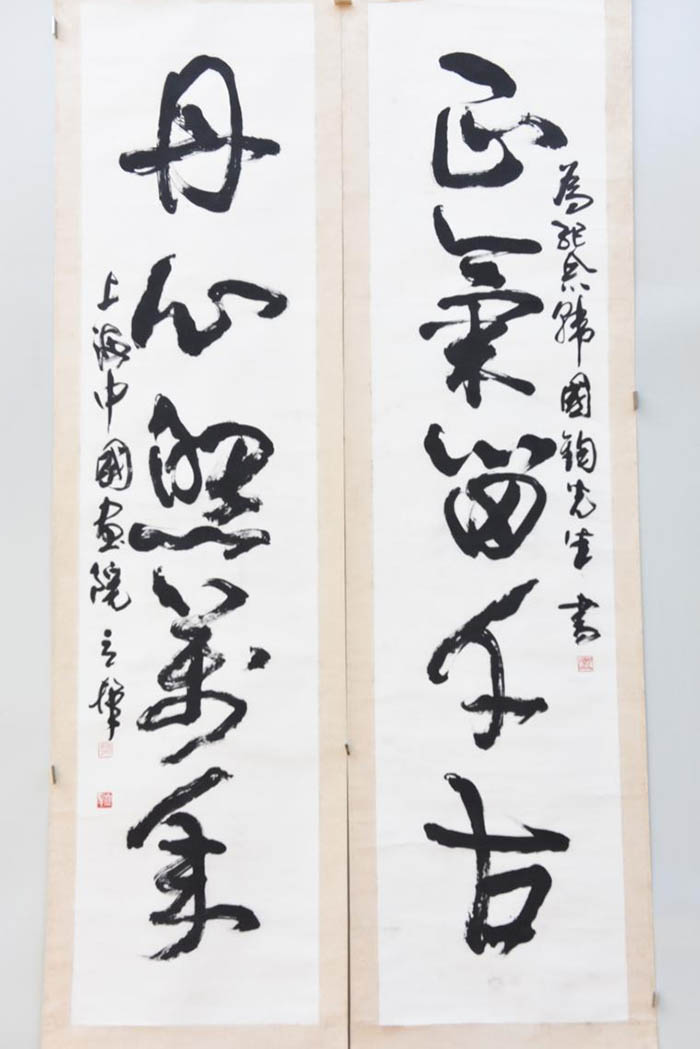 正氣留千古
為紀念韓國鈞先生書
丹心照萬年
上海中國畫院